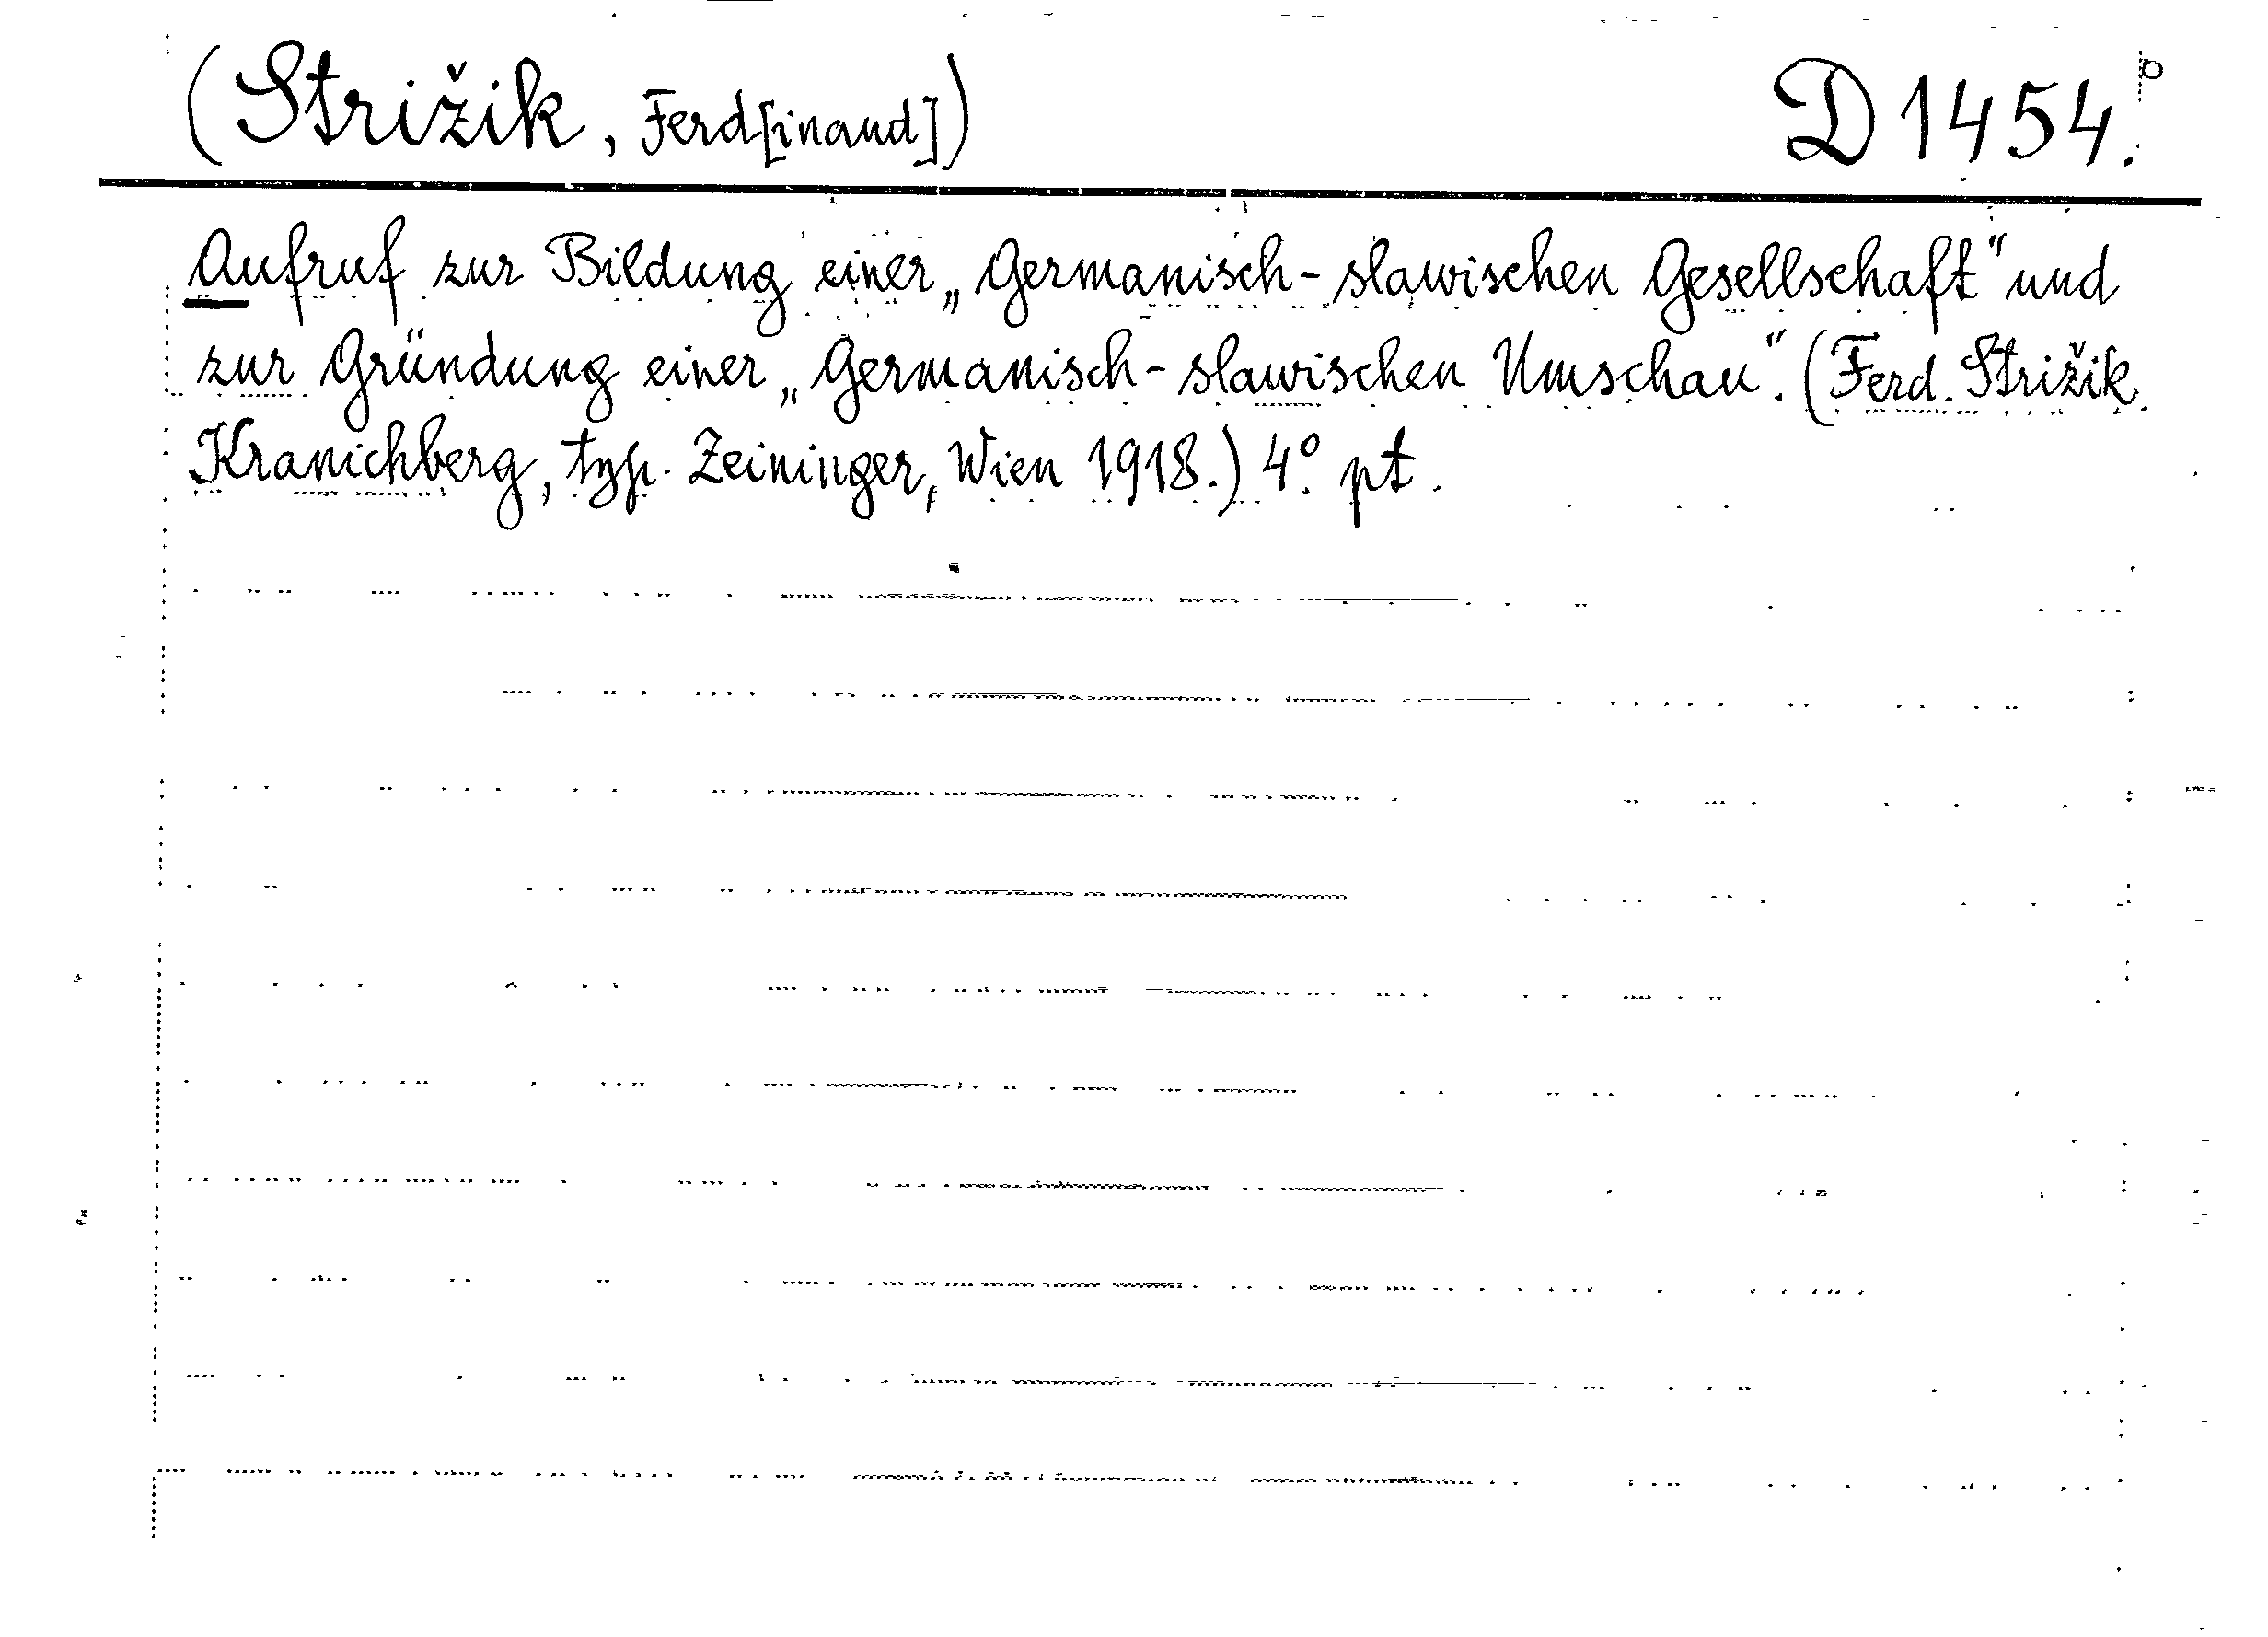 (Strižik, Ferd[inand]) D 1454.°
Aufruf zur Bildung einer „Germanisch-slawischen Gesellschaft" und
zur Gründung einer „Germanisch-slawischen Umschau". (Ferd. Strižik,
Kranichberg, typ. Zeininger, Wien 1918.) 4.° pt.